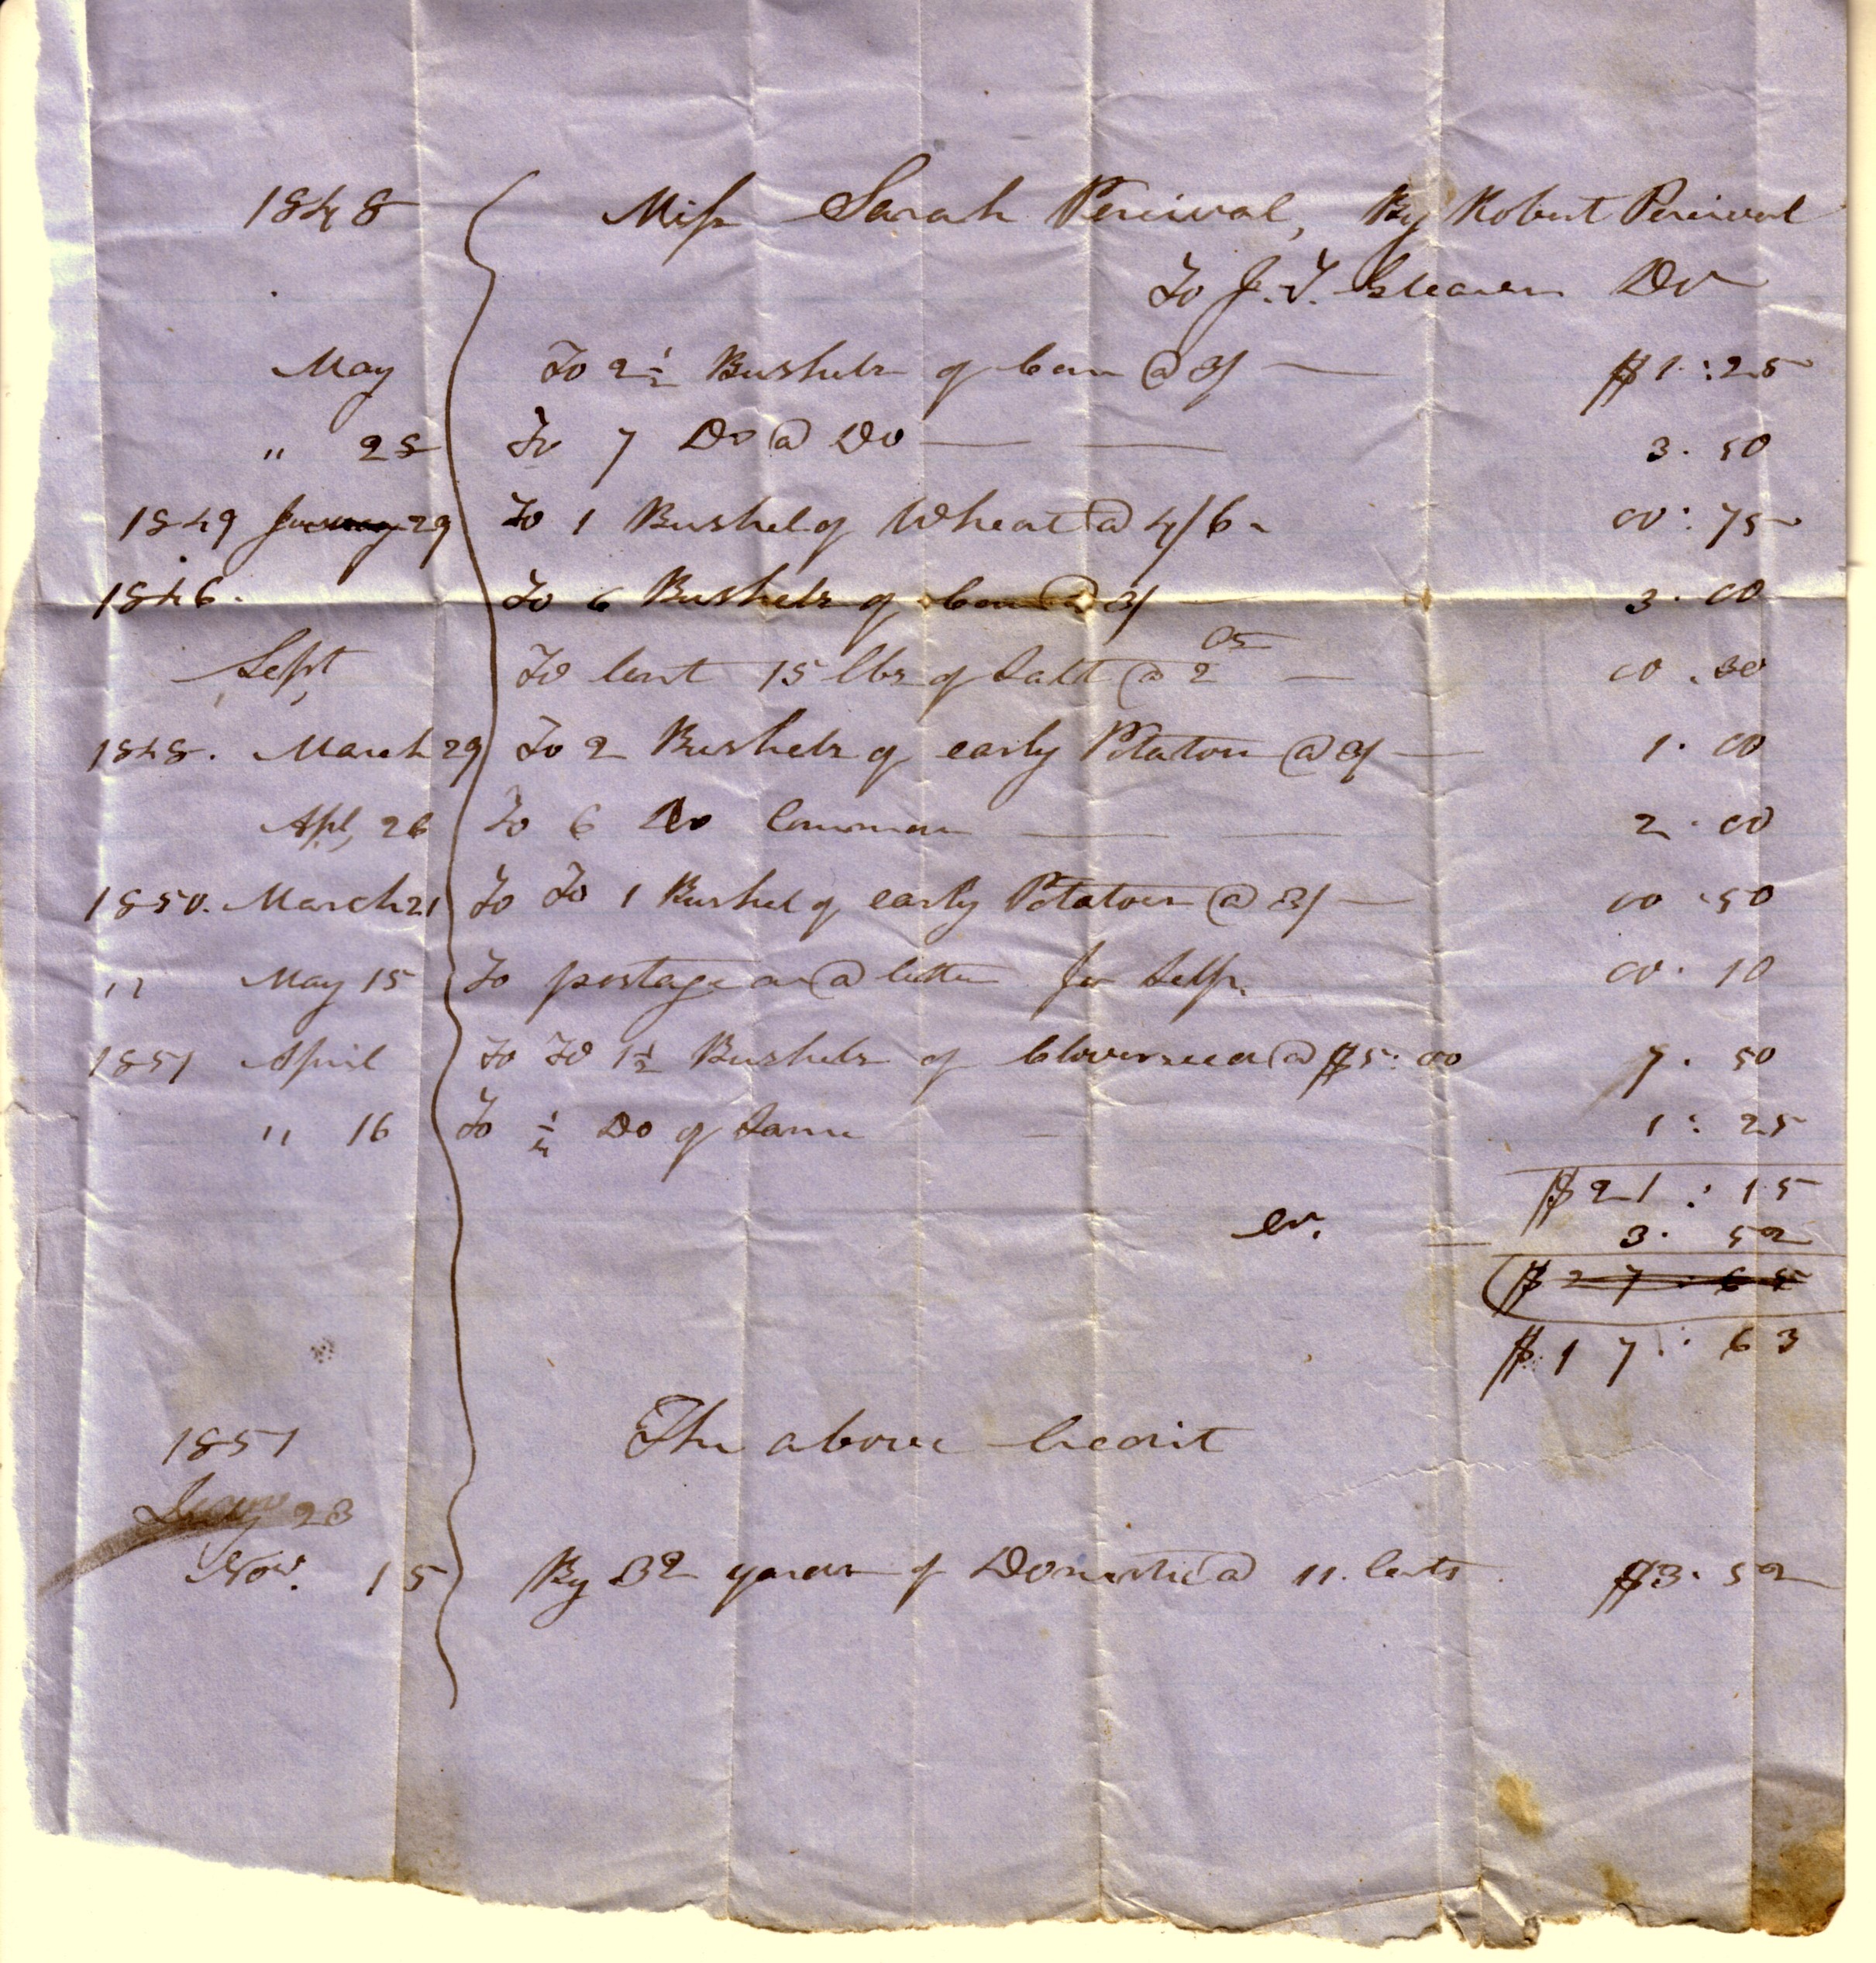 1848 Miss Sarah Percival, By Robert Percival
To J. T. Dr
May To 2 1/2 Bushels of Corn @ 3/ — $1:25
" 28 To 7 Do @ Do — — 3.50
1849 29 To 1 Bushel of Wheat @ 4/6 00:75
1846. To 6 Bushels of Corn @ 3/ — 3.00
Sept To lent 15 lbs of Salt @ 2 cs — 00.30
1848. March 29 To 2 Bushels of early Potatoes @ 3/ — 1.00
Apl, 26 To 6 Do Common — — 2.00
1850. March 21 To To 1 Bushel of early Potatoes @ 3/ — 00.50
" May 15 To postage on @ letter for Self. 00.10
1851 April To To 1 1/2 Bushels of Cloverseed @ $5:00 7.50
" 16 To 1/4 Do of Same — 1:25
$21:15
Cr. — 3.52
$27:65
$17:63
The above Credit
1851
23
Nov. 15 By 32 yards of Domestic @ 11. Cents $3.52